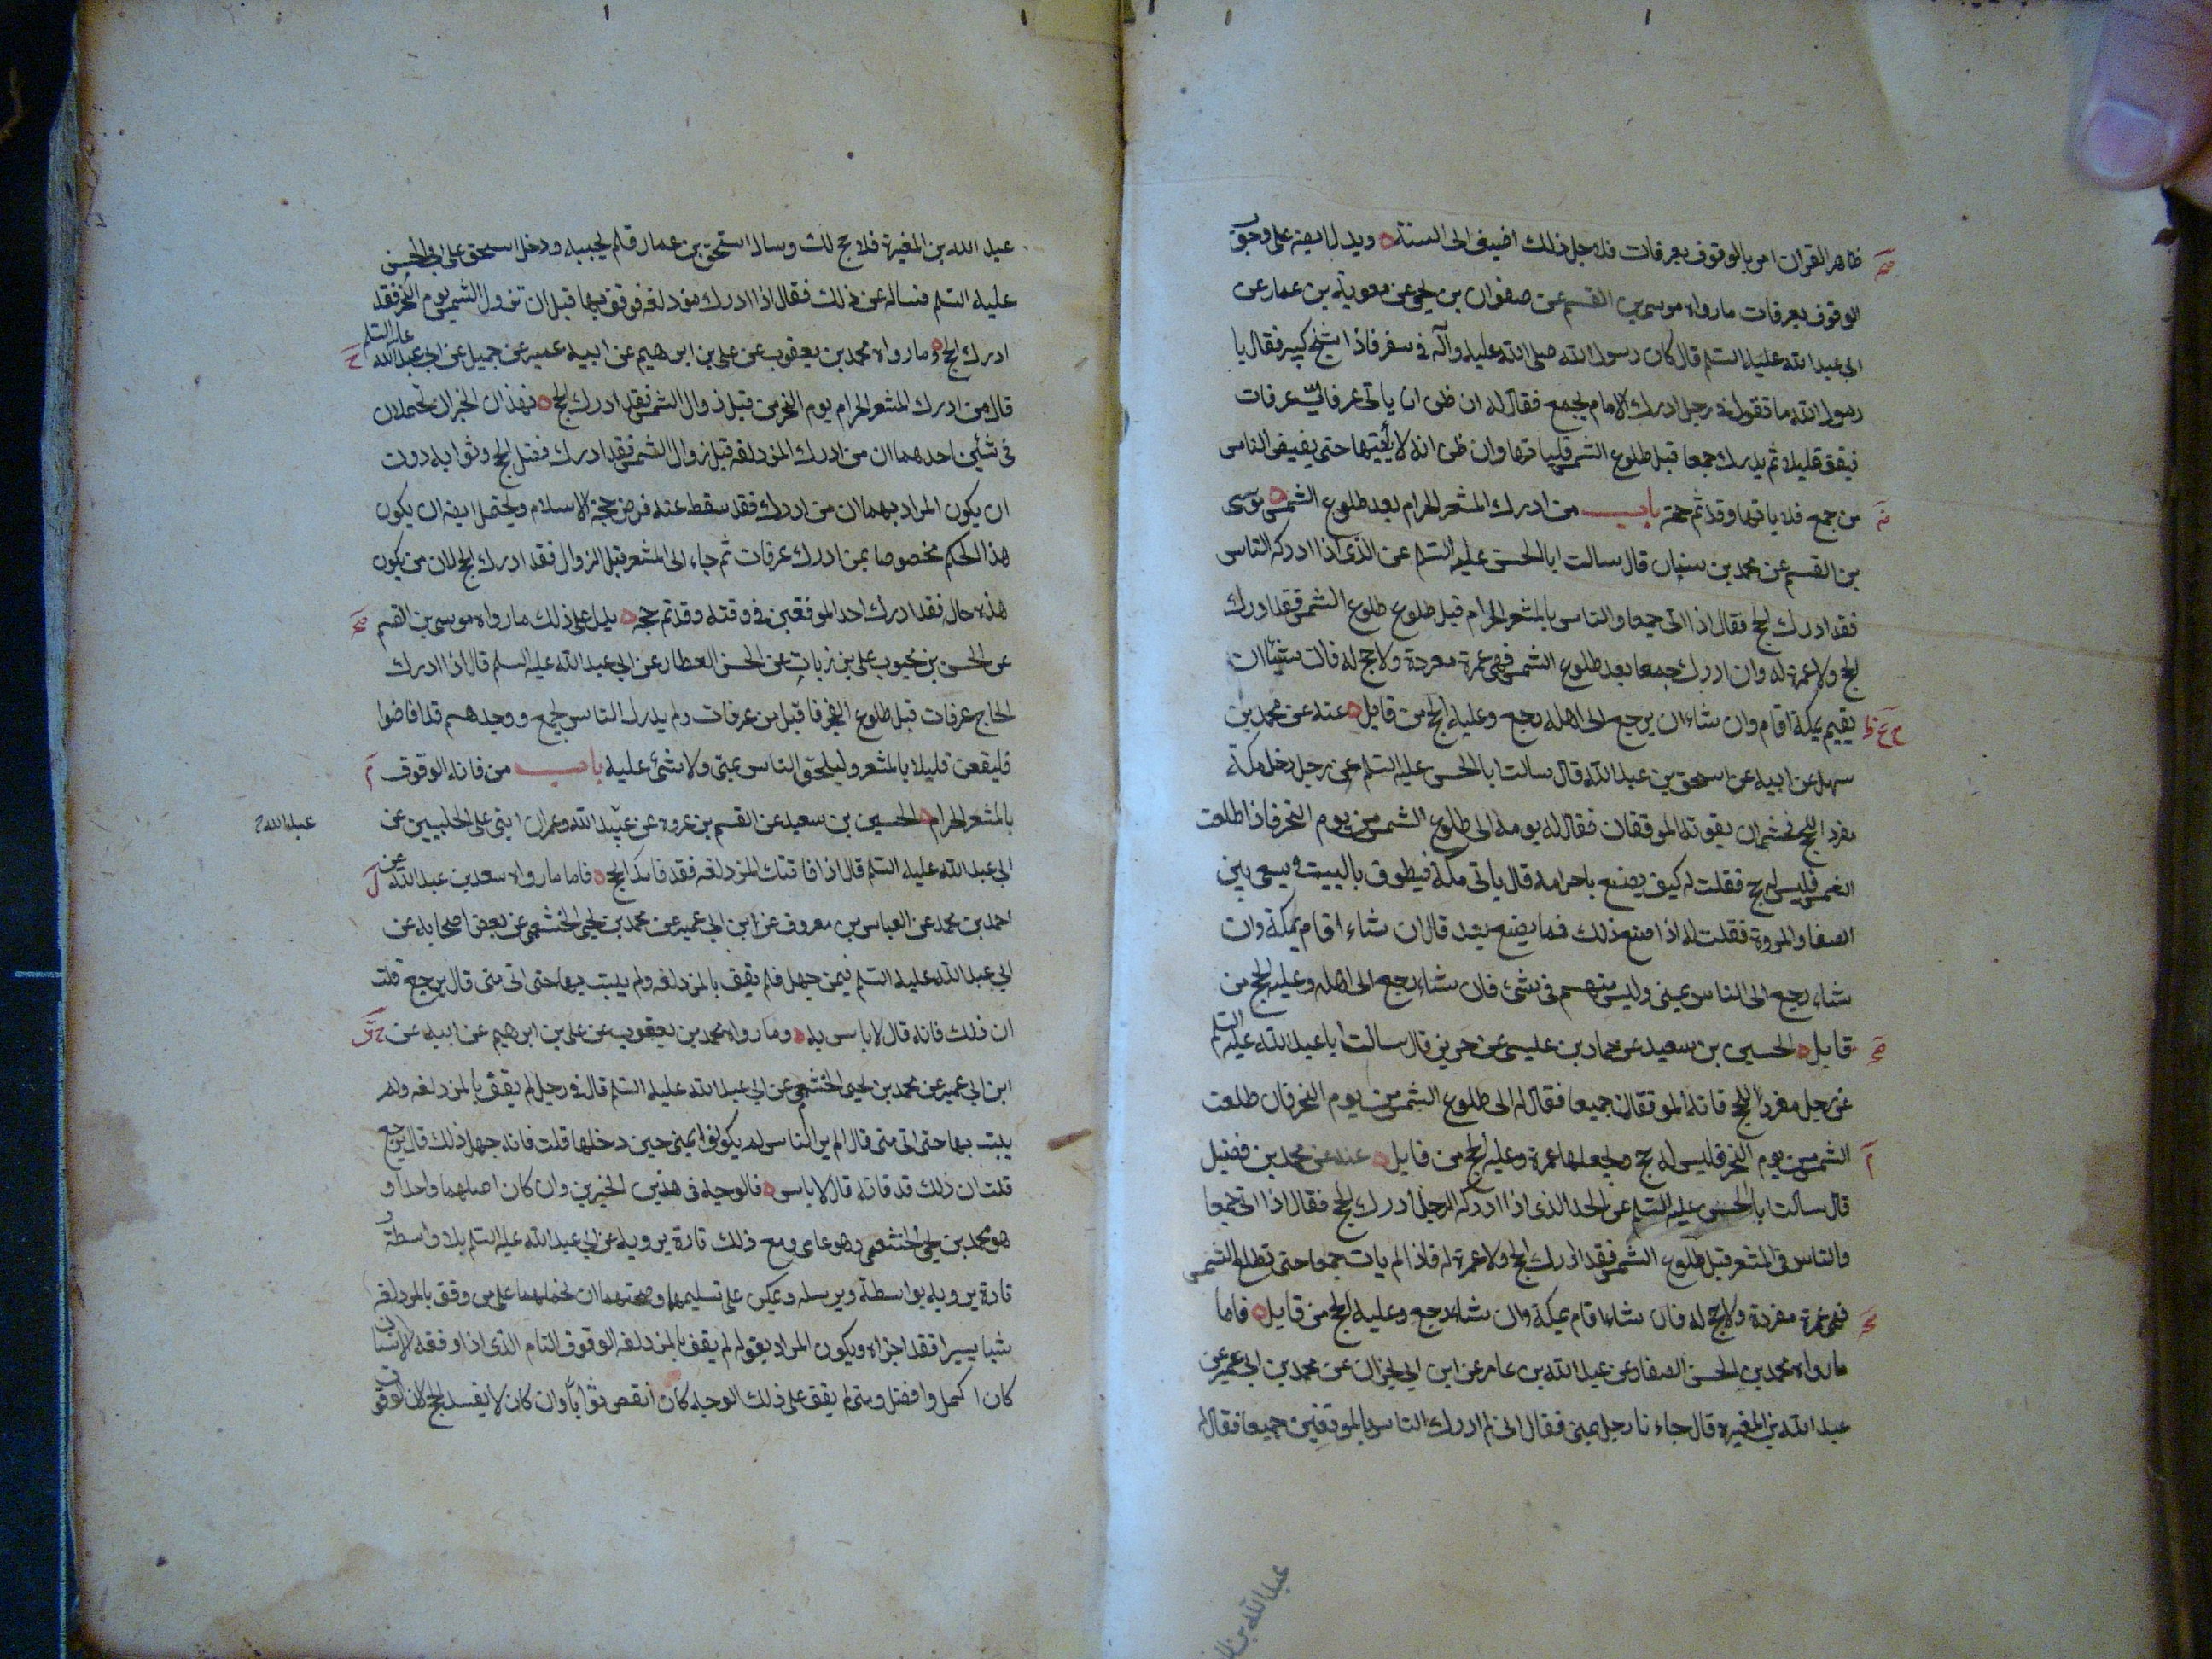 ظاهر القران امر بالوقوف بعرفات فلاجل ذلك اضيف الى السنة ويدل ايضا على وجوب
الوقوف بعرفات ما رواه موسى بن القسم عن صفوان بن يحيى عن معوية بن عمار عن
ابي عبد الله عليه السلم قال كان رسول الله صلى الله عليه وآله في سفر فاذا شيخ كبير فقال يا
رسول الله ما تقول في رجل ادرك الامام بجمع فقال له ان ظن ان ياتي عرفات عرفات
فيقف قليلا ثم يدرك جمعا قبل طلوع الشمس فلياتها وان ظن انه لا ياتيها حتى يفيض الناس
من جمع فلا ياتها وقد تم حجه باب من ادرك المشعر الحرام بعد طلوع الشمس موسى
بن القسم عن محمد بن سنان قال سالت ابا الحسن عليه السلم عن الذي اذا ادركه الناس
فقد ادرك الحج فقال اذا اتى جمعا والناس بالمشعر الحرام قبل طلوع طلوع الشمس فقد ادرك
الحج ولا عمرة له وان ادرك جمعا بعد طلوع الشمس فهي عمرة مفردة ولا حج له فان شاء ان
يقيم بمكة اقام وان شاء ان يرجع الى اهله رجع وعليه الحج من قابل عنه عن محمد بن
سهل عن ابيه عن اسحق بن عبد الله قال سالت ابا الحسن عليه السلم عن رجل دخل مكة
مفرد الحج فخشي ان يفوته الموقفان فقال له يومه الى طلوع الشمس من يوم النحر فاذا طلعت
الشمس فليس له حج فقلت له كيف يصنع باحرامه قال ياتي مكة فيطوف بالبيت ويسعى بين
الصفا والمروة فقلت له اذا صنع ذلك فما يصنع بعد قال ان شاء اقام بمكة وان
شاء رجع الى الناس بمنى وليس منهم في شئ فان شاء رجع الى اهله وعليه الحج من
قابل الحسين بن سعيد عن حماد بن عيسى عن حريز قال سالت ابا عبد الله عليه السلم
عن رجل مفرد الحج فاته الموقفان جميعا فقال له الى طلوع الشمس من يوم النحر فان طلعت
الشمس من يوم النحر فليس له حج ويجعلها عمرة وعليه الحج من قابل عنه عن محمد بن فضيل
قال سالت ابا الحسن عليه السلم عن الحد الذي اذا ادركه الرجل ادرك الحج فقال اذا اتى جمعا
والناس في المشعر قبل طلوع الشمس فقد ادرك الحج ولا عمرة له فاذا لم يات جمعا حتى تطلع الشمس
فهي عمرة مفردة ولا حج له فان شاء اقام بمكة وان شاء رجع وعليه الحج من قابل فاما
ما رواه محمد بن الحسن الصفار عن عبد الله بن عامر عن ابن ابي نجران عن محمد بن ابي عمير عن
عبد الله بن المغيرة قال جاءنا رجل بمنى فقال اني لم ادرك الناس بالموقفين جميعا فقال له
عبد الله بن
عبد الله بن المغيرة فلا حج لك وسال اسحق بن عمار فلم يجبه ودخل اسحق على ابي الحسن
عليه السلم فساله عن ذلك فقال اذا ادرك مزدلفة فوقف بها قبل ان تزول الشمس يوم النحر فقد
ادرك الحج وما رواه محمد بن يعقوب عن علي بن ابرهيم عن ابيه عمير عن جميل عن ابي عبد الله عليه السلم
قال من ادرك المشعر الحرام يوم النحر من قبل زوال الشمس فقد ادرك الحج فهذان الخبران يحتملان
في شئين احدهما ان من ادرك المزدلفة قبل زوال الشمس فقد ادرك فضل الحج وثوابه دون
ان يكون المراد بهما ان من ادرك فقد سقط عنه فرض حجة الاسلام ويحتمل ايضا ان يكون
هذا الحكم مخصوصا بمن ادرك عرفات ثم جاء الى المشعر قبل الزوال فقد ادرك الحج لان من يكون
هذه حاله فقد ادرك احد الموقفين في وقته وقد تم حجه يدل على ذلك ما رواه موسى بن القسم
عن الحسن بن محبوب علي بن رباب عن الحسن العطار عن ابي عبد الله عليه السلم قال اذا ادرك
الحاج عرفات قبل طلوع الفجر فاقبل من عرفات ولم يدرك الناس بجمع ووجدهم قد افاضوا
فليقف قليلا بالمشعر وليلحق الناس بمنى ولا شئ عليه باب من فاته الوقوف
بالمشعر الحرام الحسين بن سعيد عن القسم بن عروة عن عبيد الله وعمران ابني علي الحلبيين عن
عبد الله
ابي عبد الله عليه السلم قال اذا فاتتك المزدلفة فقد فاتك الحج فاما ما رواه سعد بن عبد الله عن
احمد بن محمد عن العباس بن معروف عن ابن ابي عمير عن محمد بن يحيى الخثعمي عن بعض اصحابه عن
ابي عبد الله عليه السلم فيمن جهل فلم يقف بالمزدلفة ولم يبت بها حتى اتى منى قال يرجع قلت
ان ذلك فاته قال لا باس به وما رواه محمد بن يعقوب عن علي بن ابرهيم عن ابيه عن
ابن ابي عمير عن محمد بن يحيى الخثعمي عن ابي عبد الله عليه السلم قال في رجل لم يقف بالمزدلفة ولم
يبت بها حتى اتى منى قال الم ير الناس لم يكونوا بمنى حين دخلها قلت فانه جهل ذلك قال يرجع
قلت ان ذلك قد فاته قال لا باس فالوجه في هذين الخبرين وان كان اصلهما واحدا و
هو محمد بن يحيى الخثعمي وهو عامي ومع ذلك تارة يرويه عن ابي عبد الله عليه السلم بلا واسطة و
تارة يرويه بواسطة ويرسله ويمكن على تسليمهما وصحتهما ان نحملهما على من وقف بالمزدلفة
شيئا يسيرا فقد اجزاه ويكون المراد بقوله لم يقف بالمزدلفة الوقوف التام الذي اذا وقفه الانسان
كان اكمل وافضل ومتى لم يقف على ذلك الوجه كان انقص ثوابا وان كان لا يفسد الحج لان الوقوف